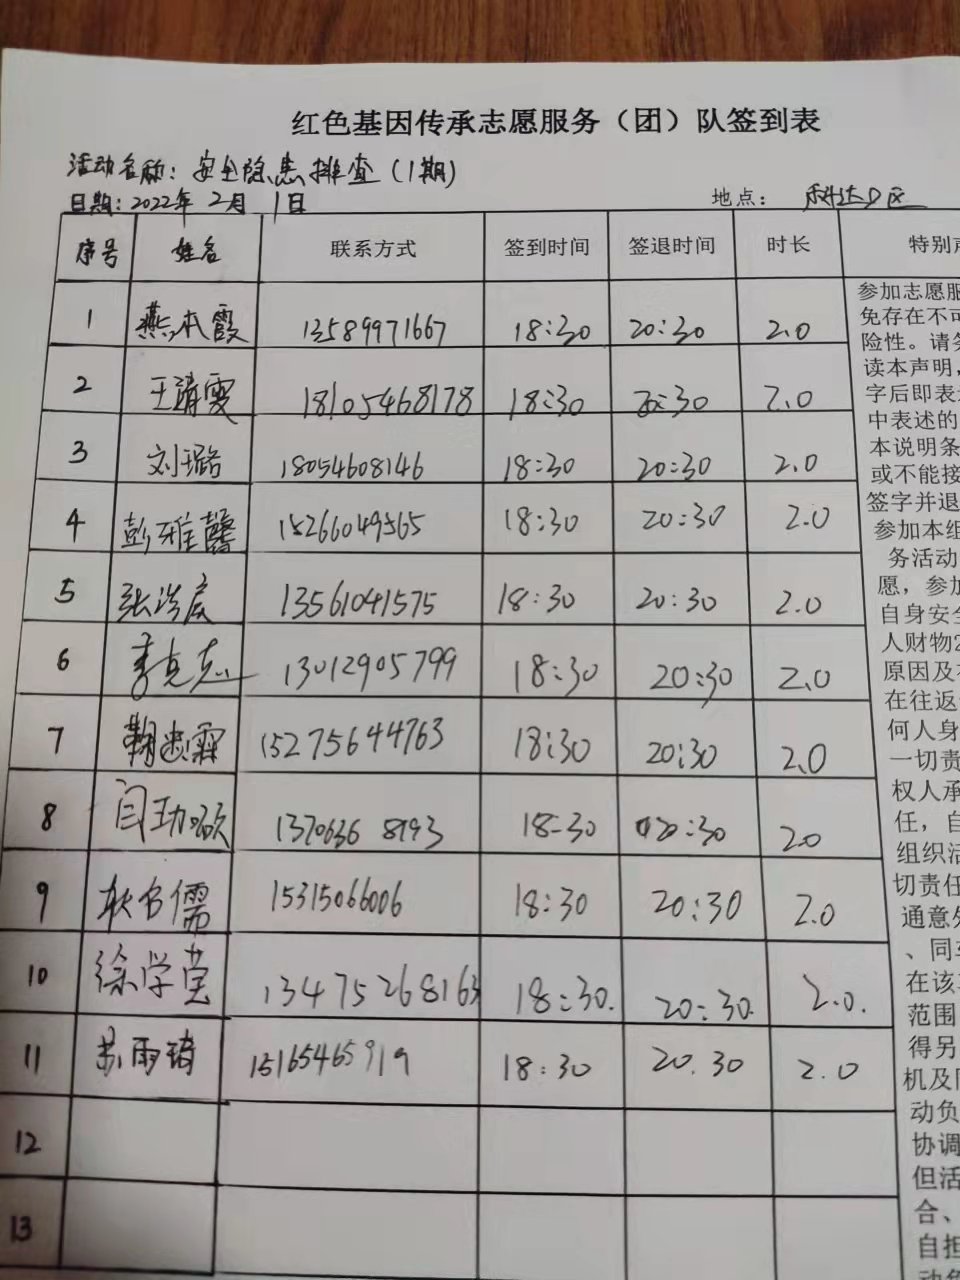 红色基因传承志愿服务（团）队签到表
活动名称：安全隐患排查（1期）
日期：2022年2月1日 地点：科达D区
序号 姓名 联系方式 签到时间 签退时间 时长 特别声
1 燕本霞 13589971667 18:30 20:30 2.0
2 王靖雯 18105468178 18:30 20:30 2.0
3 刘璐 18054608146 18:30 20:30 2.0
4 彭雅馨 15266049565 18:30 20:30 2.0
5 张浩辰 13561041575 18:30 20:30 2.0
6 李克志 13012905799 18:30 20:30 2.0
7 15275644763 18:30 20:30 2.0
8 1370636 8193 18-30 20:30 2.0
9 15315066006 18:30 20:30 2.0
10 徐学莹 13475268163 18:30. 20:30. 2.0.
11 苏雨琦 15165465919 18:30 20.30 2.0
12
13
参加志愿服
免存在不可
险性。请务
读本声明，
字后即表示
中表述的
本说明条
或不能接
签字并退
参加本组
务活动
愿，参加
自身安全
人财物2
原因及
在往返
何人身
一切责
权人承
任，自
组织活
切责任
通意外
、同车
在该
范围
得另
机及同
动负
协调
但活
合、
自担
动负